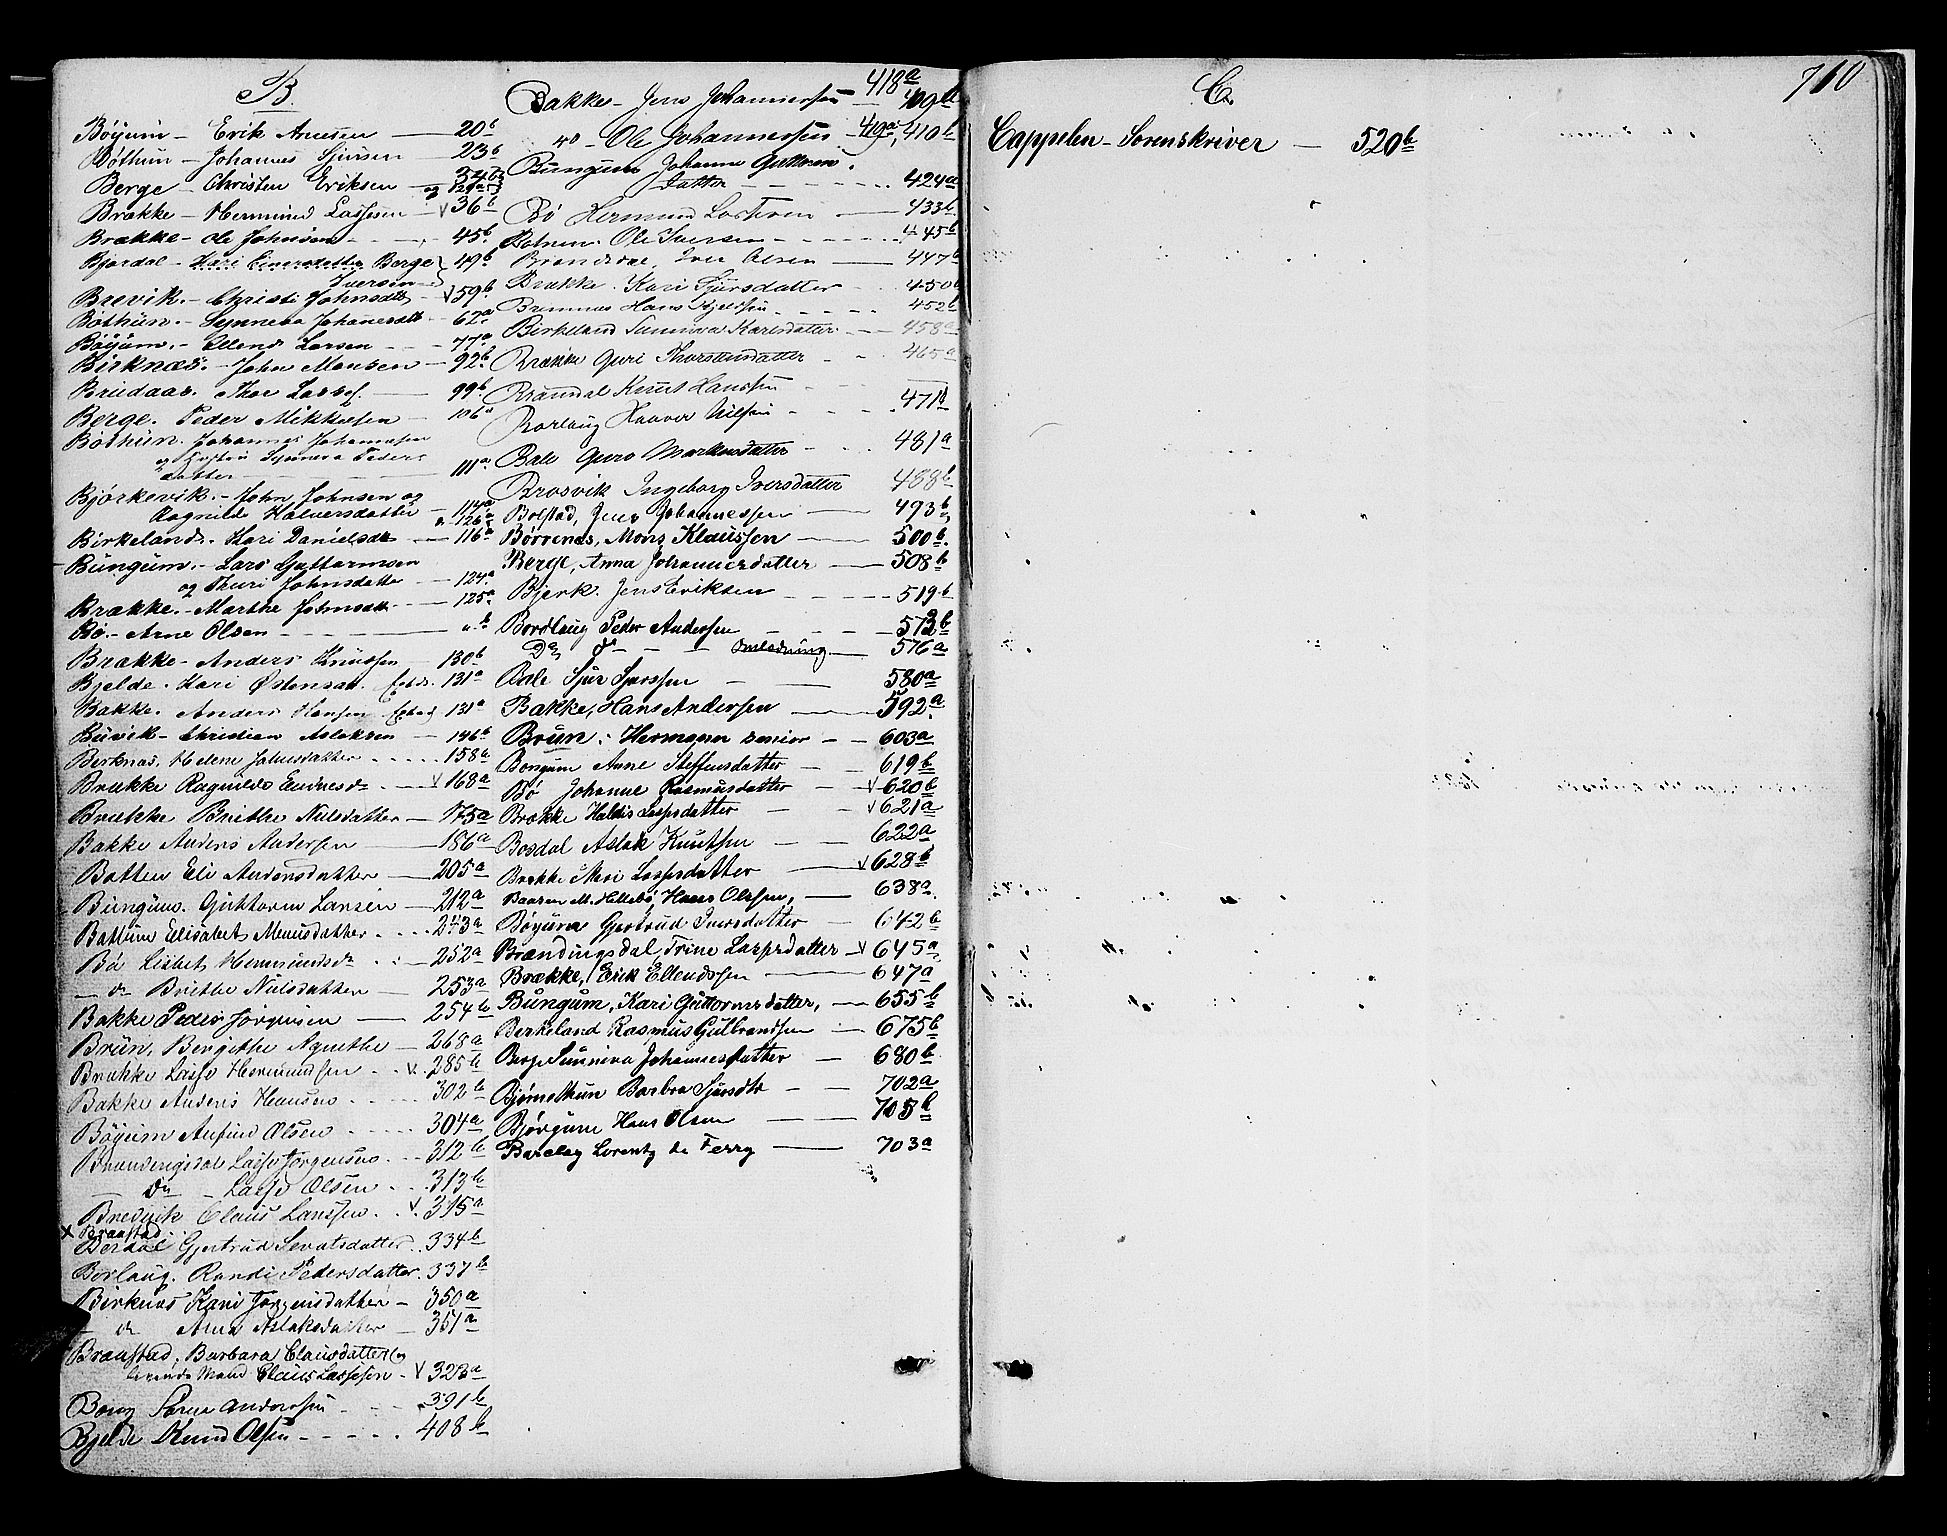 B.
Bøyum - Erik Arnesen — 20b
Bøthun - Johannes Sjursen — 23b
Berge - Christen Eriksen — 34b
og 129a
Brække - Hermund Lassesen — √ 36b
Brække - Ole Johnsen - - - 45b
Bjordal - Kari Einersdatter Berge 49b
Iversen
Brevik - Christi Johnsdtr - √ 59b
Bøthun - Synneva Johanesdtr - 62a
Bøyum - Ellend Larsen - - - 77a
Birknæs - John Monsen — 92b
Thor Lasses. — 99b
Berge. Peder Mikkelsen — 106a
Bøthun. Johannes Johannesen
og Hustru Synneva Peders
datter — 111a
Bjørkevik. - John Johnsen og
Ragnilde Halversdatter — 114a
o. 126a
Birkeland. - Kari Danielsdtr — 116a
Bungum. - Lars Guttormsen
og Thuri Johnsdatter — 124a
Brække. - Marthe Johnsdtr. — 125a
Bø. - Arne Olsen - - - — " b
Brække - Anders Knudsen — 130b
Bjelde. Kari Østensdtr. 131a
Bakke. Anders Hansen 131a
Buvik - Christian Aslaksen — 146b
Birknæs, Helene Johnsdatter . . . . . 158b
Brække Ragnilde Endresdr . . . √ 168a
Brække Brithe Nilsdatter — 175a
Bakke Anders Andersen — 186a
Batten Eli Andersdatter — 205a
Bungum. Guttorm Larsen — 212a
Battum Elisabet Monsdatter . . . . 243a
Bø Lisbet Hermundsdr . : — 252a
— do Brithe Nilsdatter — 253a
Bakke Peder Jørgensen — 254b
Brun, Bergithe Agnethe — 268a
Brække Lasse Hermundsen . . √. 285b
Bakke Anders Hansen . . . . . 302b
Bøyum Anfind Olsen . . . . . 304a
Brændingsdal Lasse Jørgensen . . . 312b
— do - Lasse Olsen . . . 313b
Bredvik Claus Larssen . . √. 315a
x Braastad
Berdal Gjertrud Sevatsdatter . . 334b
Borlaug. Randi Pedersdatter . 337b
Birknæs Kari Jørgensdatter — 350a
— do Anna Aslaksdatter — 351a
Braastad, Barbara Clausdatter og
levende Mand Claus Lassesen . √ 323a
Borg Søren Anderssen . - - - 391b
Bjelde Knud Olsen - - - - 408b
Bakke - Jens Johannessen — 418a
409b
do - Ole Johannessen - 419a, 410b
Bungum Johanne Guttorms
datter - - - . . . 424a
Bø Hermund Lassesen — 433b
Botnen. Ole Iversen - - - . . . 445b
Brandsdal, Iver Olsen — 447b
Brække. Kari Sjursdatter — 450b
Bremnes Hans - - - - - 452b
Birkeland Sunniva Karlsdatter — 458a
Brække Guri Thorstensdatter - - 465a
Brandal Knut Hanssen - - - —
Borlaug Haaver Nilsen - - - . 471b
Bale Guro Markusdatter - . . 481a
Brosvik Ingeborg Iversdatter 488b
Bolstad, Jens Johannessen — 493b
Børrenes, Mons Klaussen — 500b.
Berge, Anna Johannesdatter — 508b
Bjerk. Jens Eriksen - - - - - 519b
Bordlaug Peder Andersen - - - 573b
Do do - - - Omlodning — 576a
Bale Sjur Sjursen - — 580a
Bakke, Hans Andersen — 592a
Brun. Hermann senior - - 603a
Bongum Anne Steffensdatter — 619b
Bø Johanne Rasmusdatter — √ 620b
Brække Haldis Lassesdatter — √ 621a
Bosdal Aslak Knutsen — — 622a
Brække Mari Lassesdatter — √ 628b
Baarsen M. Hillebø, Hans Olssen, — 638a
Bøyum Gjertrud Iversdatter — 642b
Brændingsdal, Trine Lassesdatter — √ 645a
Brække, Erik Ellendssen — 647a
Bungum, Kari Guttormsdatter, — 655b
Berkeland Rasmus Gulbrandsen — 675b
Berge Sunniva Johannesdatter — 680b
Bjørnethun Barbra Sjursdtr — - 702a
Bjørgum Hans Olsen — — 705b
Barclay Lorentz de Ferry — 703a
C.
710
Cappelen - Sorenskriver — 520b